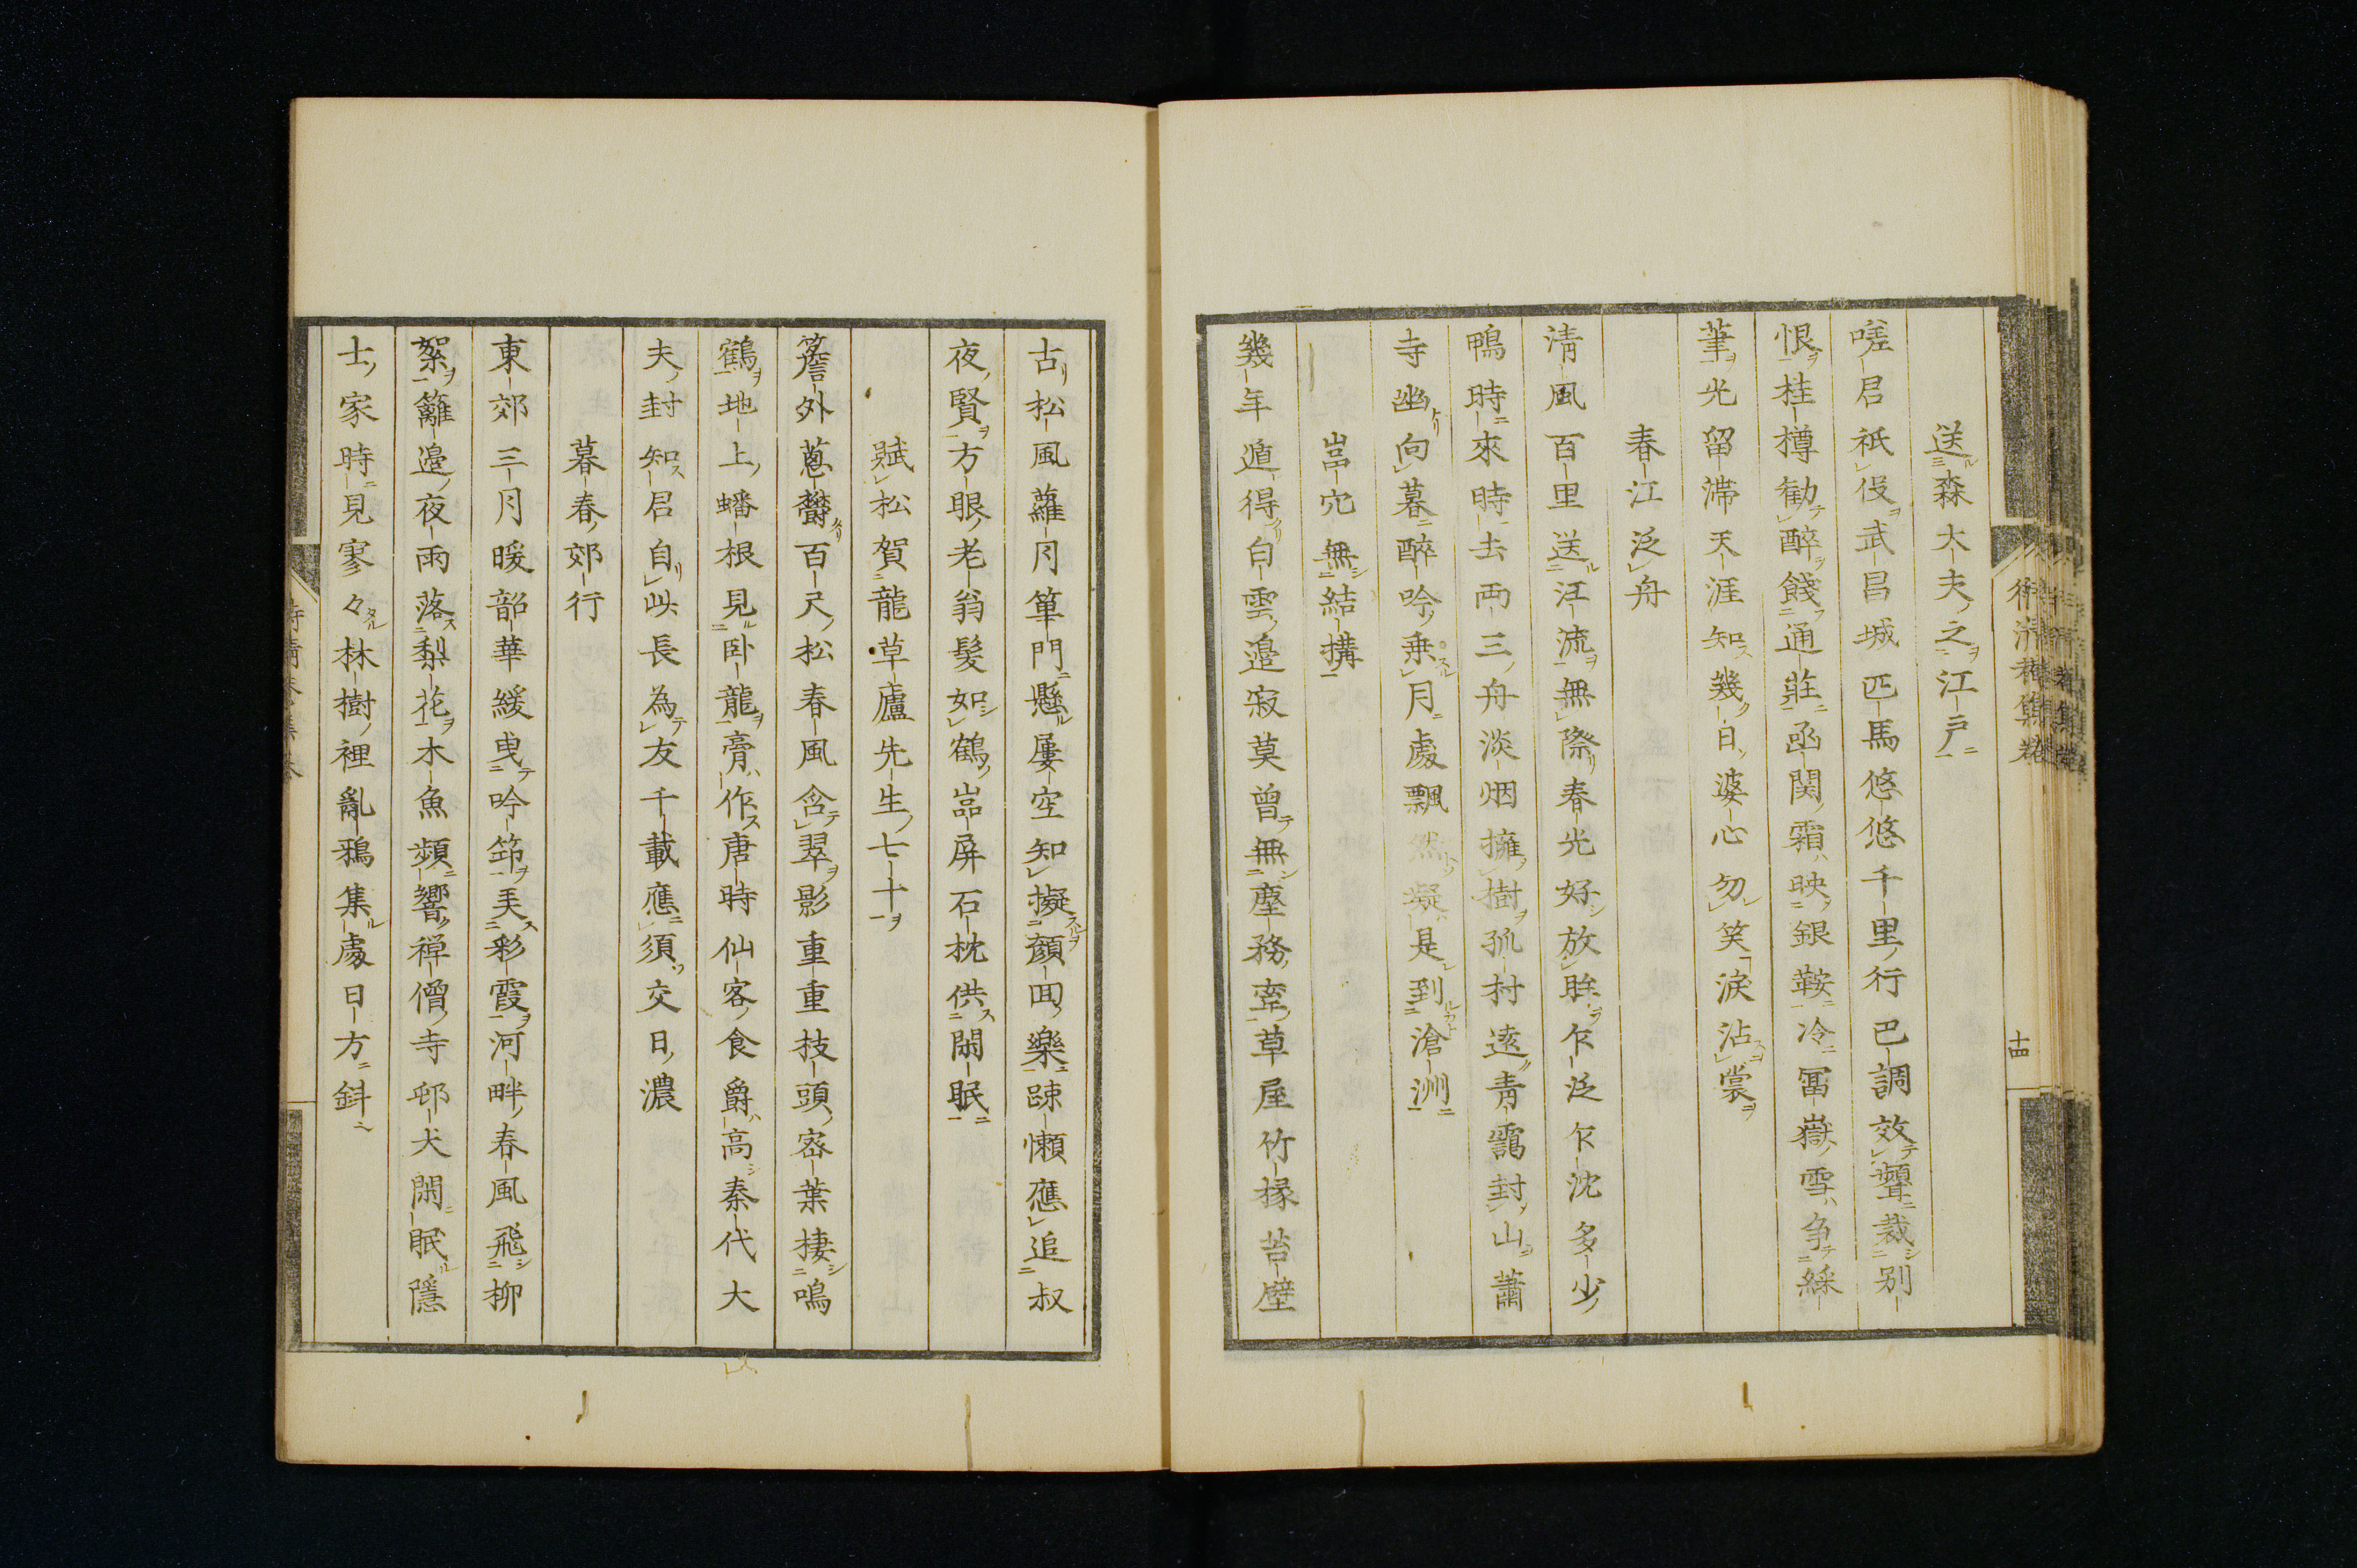 送森大夫之江戸
嗟君祇役武昌城匹馬悠悠千里行巴調效顰裁别
恨桂樽勧醉餞通莊函関霜映銀鞍冷冨嶽雪争綵
筆光留滞天涯知幾日婆心勿笑淚沾裳
春江泛舟
淸風百里送江流無際春光好放眸乍泛乍沈多少
鴨時來時去両三舟淡烟擁樹孤村遠青靄封山蕭
寺幽向暮醉吟乗月處飄然凝是到滄洲
嵓穴無結搆
幾年遁得白雲邉寂莫曽無塵務牽草屋竹椽苔壁
十四
古松風蘿月篳門懸屢空知擬顔回樂踈懶應追叔
夜賢方眼老翁髪如鶴嵓屏石枕供閑眠
賦松賀龍草廬先生七十
簷外蔥欝百尺松春風含翠影重重枝頭宻葉棲鳴
鶴地上蟠根見卧龍膏作唐時仙客食爵高秦代大
夫封知君自此長為友千載應須交日濃
暮春郊行
東郊三月暖韶華緩曳吟笻羙彩霞河畔春風飛柳
絮籬邉夜雨落梨花木魚頻響禅僧寺邨犬閑眠隱
士家時見寥々林樹裡亂鴉集處日方斜